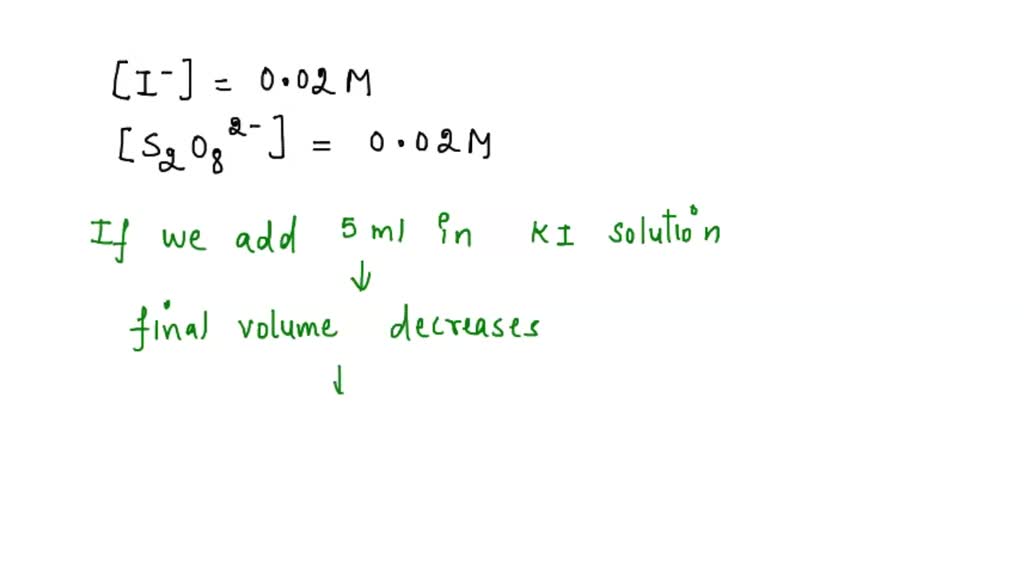 [I⁻] = 0.02 M
[S₂O₈²⁻] = 0.02 M
If we add 5 ml in KI solution
↓
final volume decreases
↓